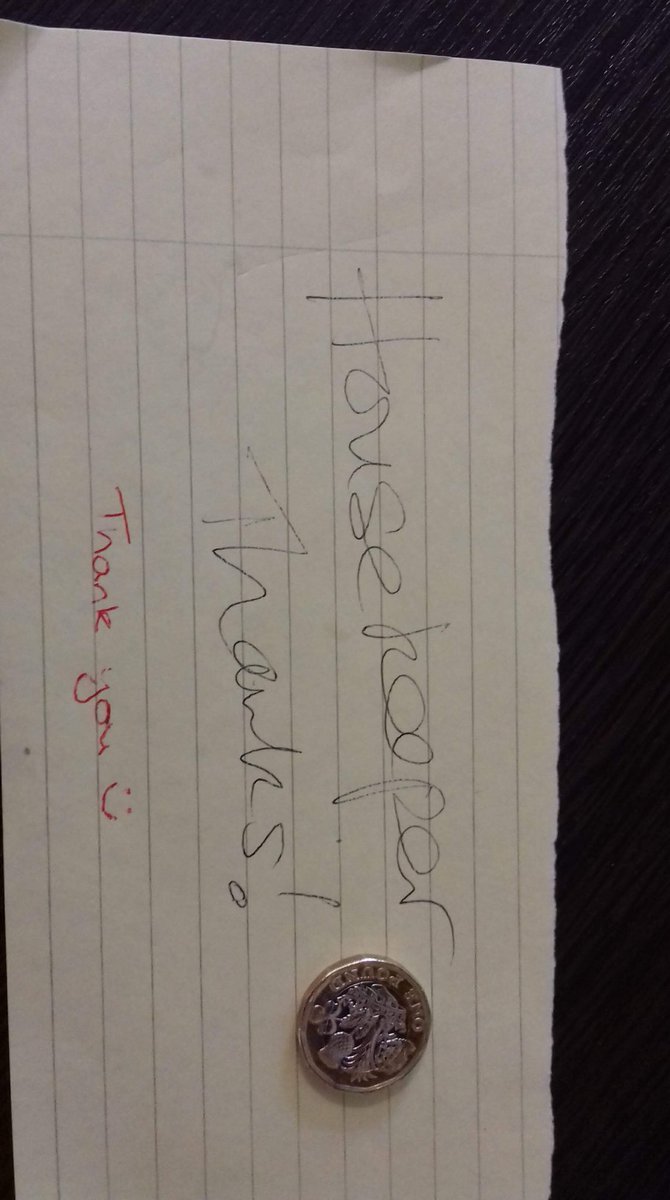 Housekeeper
Thanks!
Thank you :)
ONE POUND